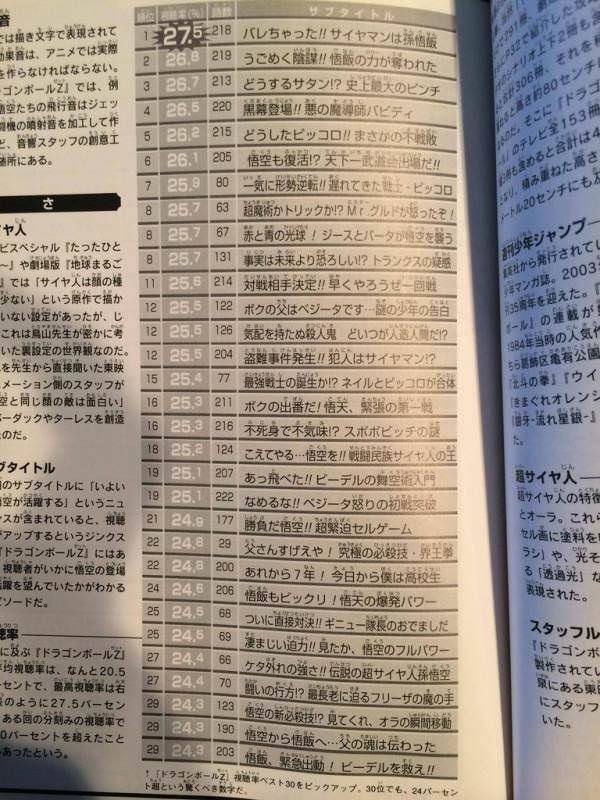 音
では描き文字で表現されて
効果音は、アニメでは実際
を作らなければならない。
ゴンボールZ』では、例
悟空たちの飛行音はジェッ
闘機の噴射音を加工して作
ど、音響スタッフの創意工
随所にある。
さ
イヤ人
ビスペシャル『たったひと
〜』や劇場版『地球まるご
』では「サイヤ人は顔の種
少ない」という原作で描か
いない設定があったが、じ
これは鳥山先生が密かに考
いた裏設定の世界観なのだ。
れを先生から直接聞いた東映
メーション側のスタッフが
空と同じ顔の敵は面白い」
ーダックやターレスを創造
たのだ。
ブタイトル
回のサブタイトルに「いよい
空が活躍する」というニュ
クスが含まれていると、視聴
がアップするというジンクス
『ドラゴンボールZ』にはあ
視聴者がいかに悟空の登場
活躍を望んでいたかがわかる
ピソードだ。
聴率
に及ぶ『ドラゴンボールZ』
平均視聴率は、なんと20.5
ーセントで、最高視聴率は右
表のように27.5パーセント
ある回の分刻みの視聴率で
0パーセントを超えたこと
あったという。
順位 視聴率(%) 話数 サブタイトル
1 27.5 218 バレちゃった!! サイヤマンは孫悟飯
2 26.8 219 うごめく陰謀!! 悟飯の力が奪われた
3 26.7 213 どうするサタン!? 史上最大のピンチ
4 26.5 220 黒幕登場!! 悪の魔導師バビディ
5 26.2 215 どうしたピッコロ!! まさかの不戦敗
6 26.1 205 悟空も復活!? 天下一武道会出場だ!!
7 25.9 80 一気に形勢逆転!! 遅れてきた戦士・ピッコロ
8 25.7 63 超魔術かトリックか!? Mr.グルドが怒ったぞ!
8 25.7 67 赤と青の光球! ジースとバータが悟空を襲う
8 25.7 131 事実は未来より恐ろしい!? トランクスの疑惑
11 25.6 214 対戦相手決定!! 早くやろうぜ一回戦
12 25.5 122 ボクの父はベジータです…謎の少年の告白
12 25.5 126 気配を持たぬ殺人鬼 どいつが人造人間だ!?
12 25.5 204 盗難事件発生!! 犯人はサイヤマン!?
15 25.4 77 最強戦士の誕生か!? ネイルとピッコロが合体
16 25.3 211 ボクの出番だ! 悟天、緊張の第一戦
16 25.3 216 不死身で不気味!? スポポビッチの謎
18 25.2 124 こえてやる…悟空を!! 戦闘民族サイヤ人の王
19 25.1 207 あっ飛べた!! ビーデルの舞空術入門
19 25.1 222 なめるな!! ベジータ怒りの初戦突破
21 24.9 177 勝負だ悟空!! 超緊迫セルゲーム
22 24.8 29 父さんすげえや! 究極の必殺技・界王拳
22 24.8 200 あれから7年! 今日から僕は高校生
24 24.6 206 悟飯もビックリ! 悟天の爆発パワー
25 24.5 68 ついに直接対決!! ギニュー隊長のおでましだ
25 24.5 69 凄まじい迫力!! 見たか、悟空のフルパワー
27 24.4 66 ケタ外れの強さ!! 伝説の超サイヤ人孫悟空
27 24.4 70 闘いの行方!? 最長老に迫るフリーザの魔の手
29 24.3 123 悟空の新必殺技!? 見てくれ、オラの瞬間移動
29 24.3 190 悟空から悟飯へ…父の魂は伝わった
29 24.3 203 悟飯、緊急出動! ビーデルを救え!!
↑『ドラゴンボールZ』視聴率ベスト30をピックアップ。30位でも、24パーセ
ント超という驚くべき数字だ。
計306冊、それを積
高さ約80センチ
なのだ。そこに『ドラ
』のテレビ全153冊
も含めると合計は4
となり、積み重ねた高さ
ートル20センチにも及
週刊少年ジャンプ
集英社から発行されてい
少年マンガ誌。2003年
刊35周年を迎えた。『
ボール』の連載が
1984年当時の人気作
ちら葛飾区亀有公園
『北斗の拳』『ウイ
『きまぐれオレンジ
『銀牙-流れ星銀-』
超サイヤ人
超サイヤ人の特徴
とオーラ。これら
セル画に塗料を
ラシ」や、光そ
る「透過光」な
表現された。
スタッフル
『ドラゴンボ
製作されてい
泉にある東
でスタッフ
いた。